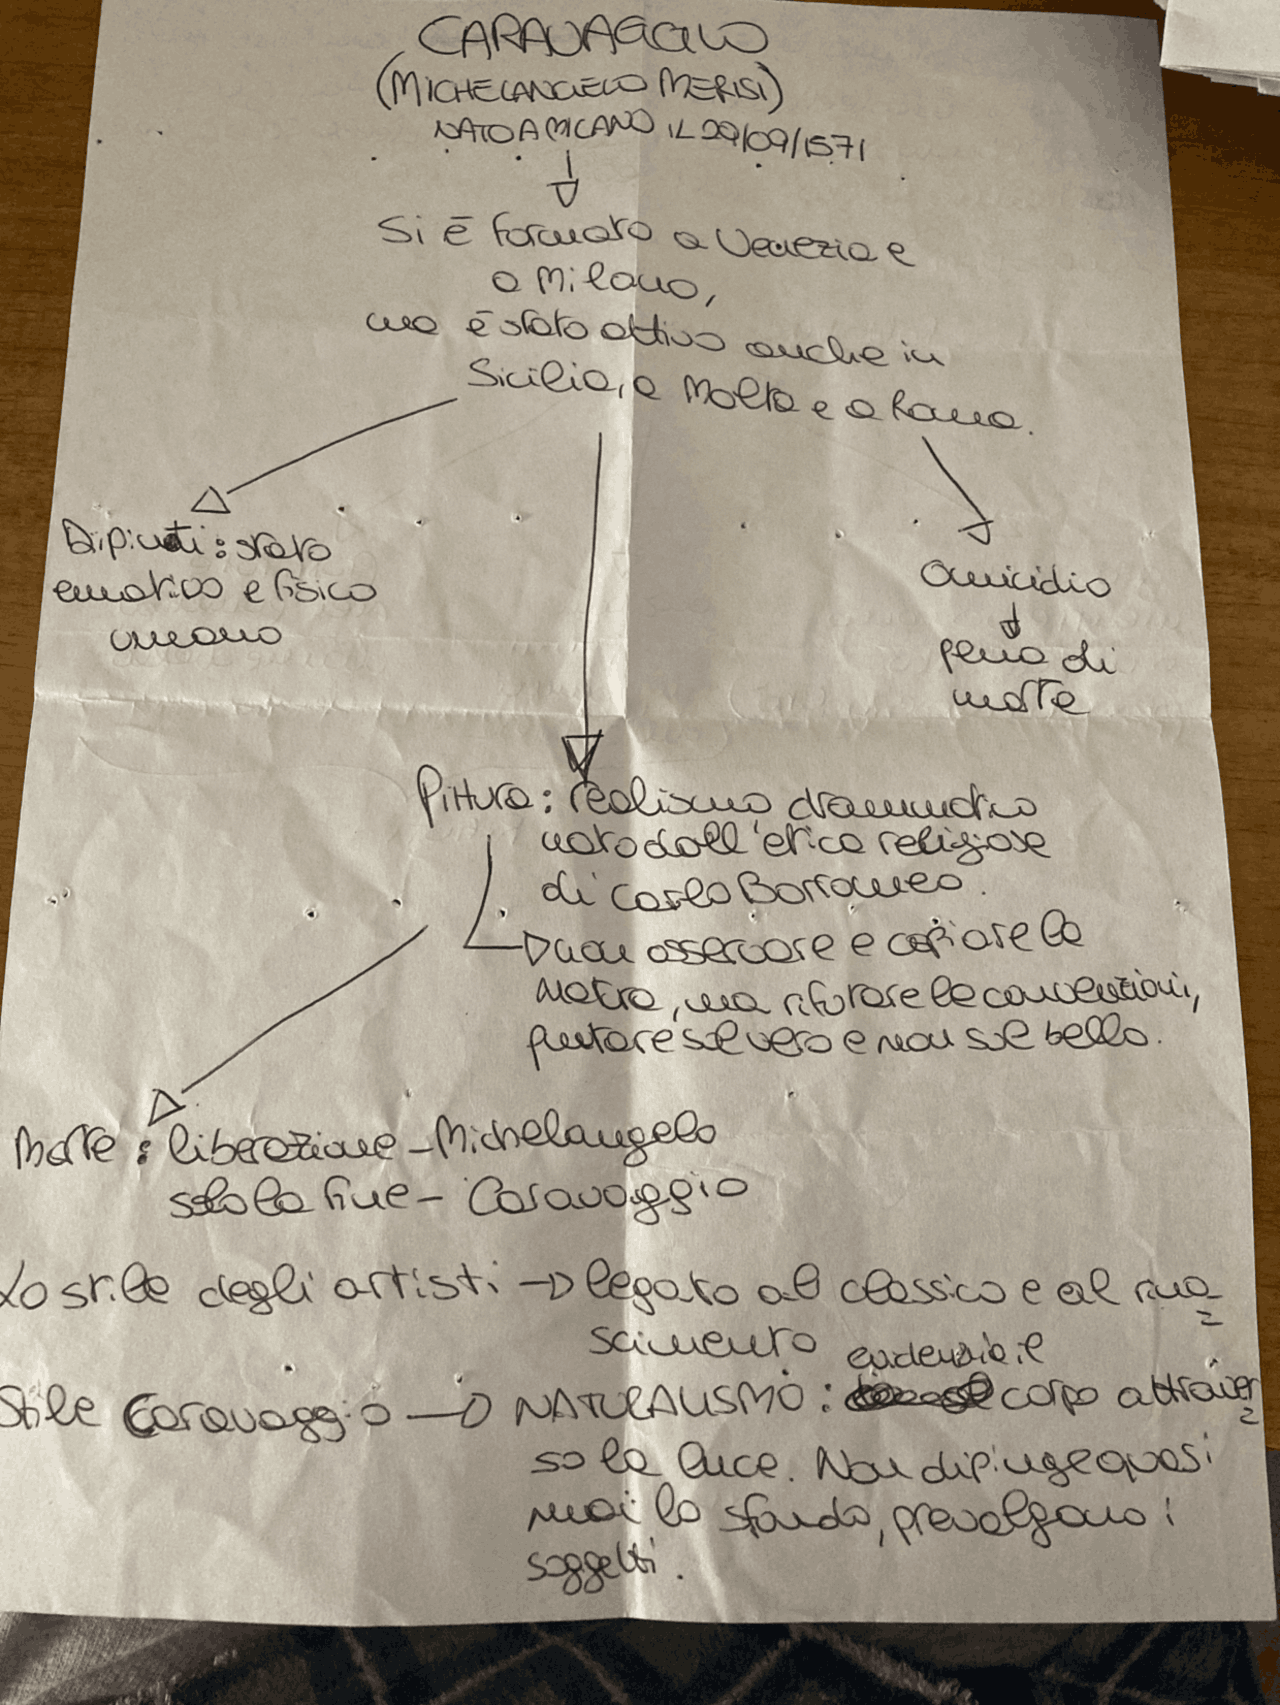 CARAVAGGIO
(MICHELANGELO MERISI)
NATO A MILANO IL 29/09/1571
Si è formato a Venezia e
a Milano,
ma è stato attivo anche in
Sicilia, a Malta e a Roma.
Dipinti: stato
emotivo e fisico
umano
Omicidio
pena di
morte
Pittura: realismo drammatico
nato dall'etica religiosa
di Carlo Borromeo.
non osservare e copiare la
natura, ma rifiutare le convenzioni,
puntare sul vero e non sul bello.
Morte: liberazione - Michelangelo
solo la fine - Caravaggio
Lo stile degli artisti → legato al classico e al rina=
scimento
evidenzia il
Stile Caravaggio → NATURALISMO: corpo attraver=
so la luce. Non dipinge quasi
mai lo sfondo, prevalgono i
soggetti.